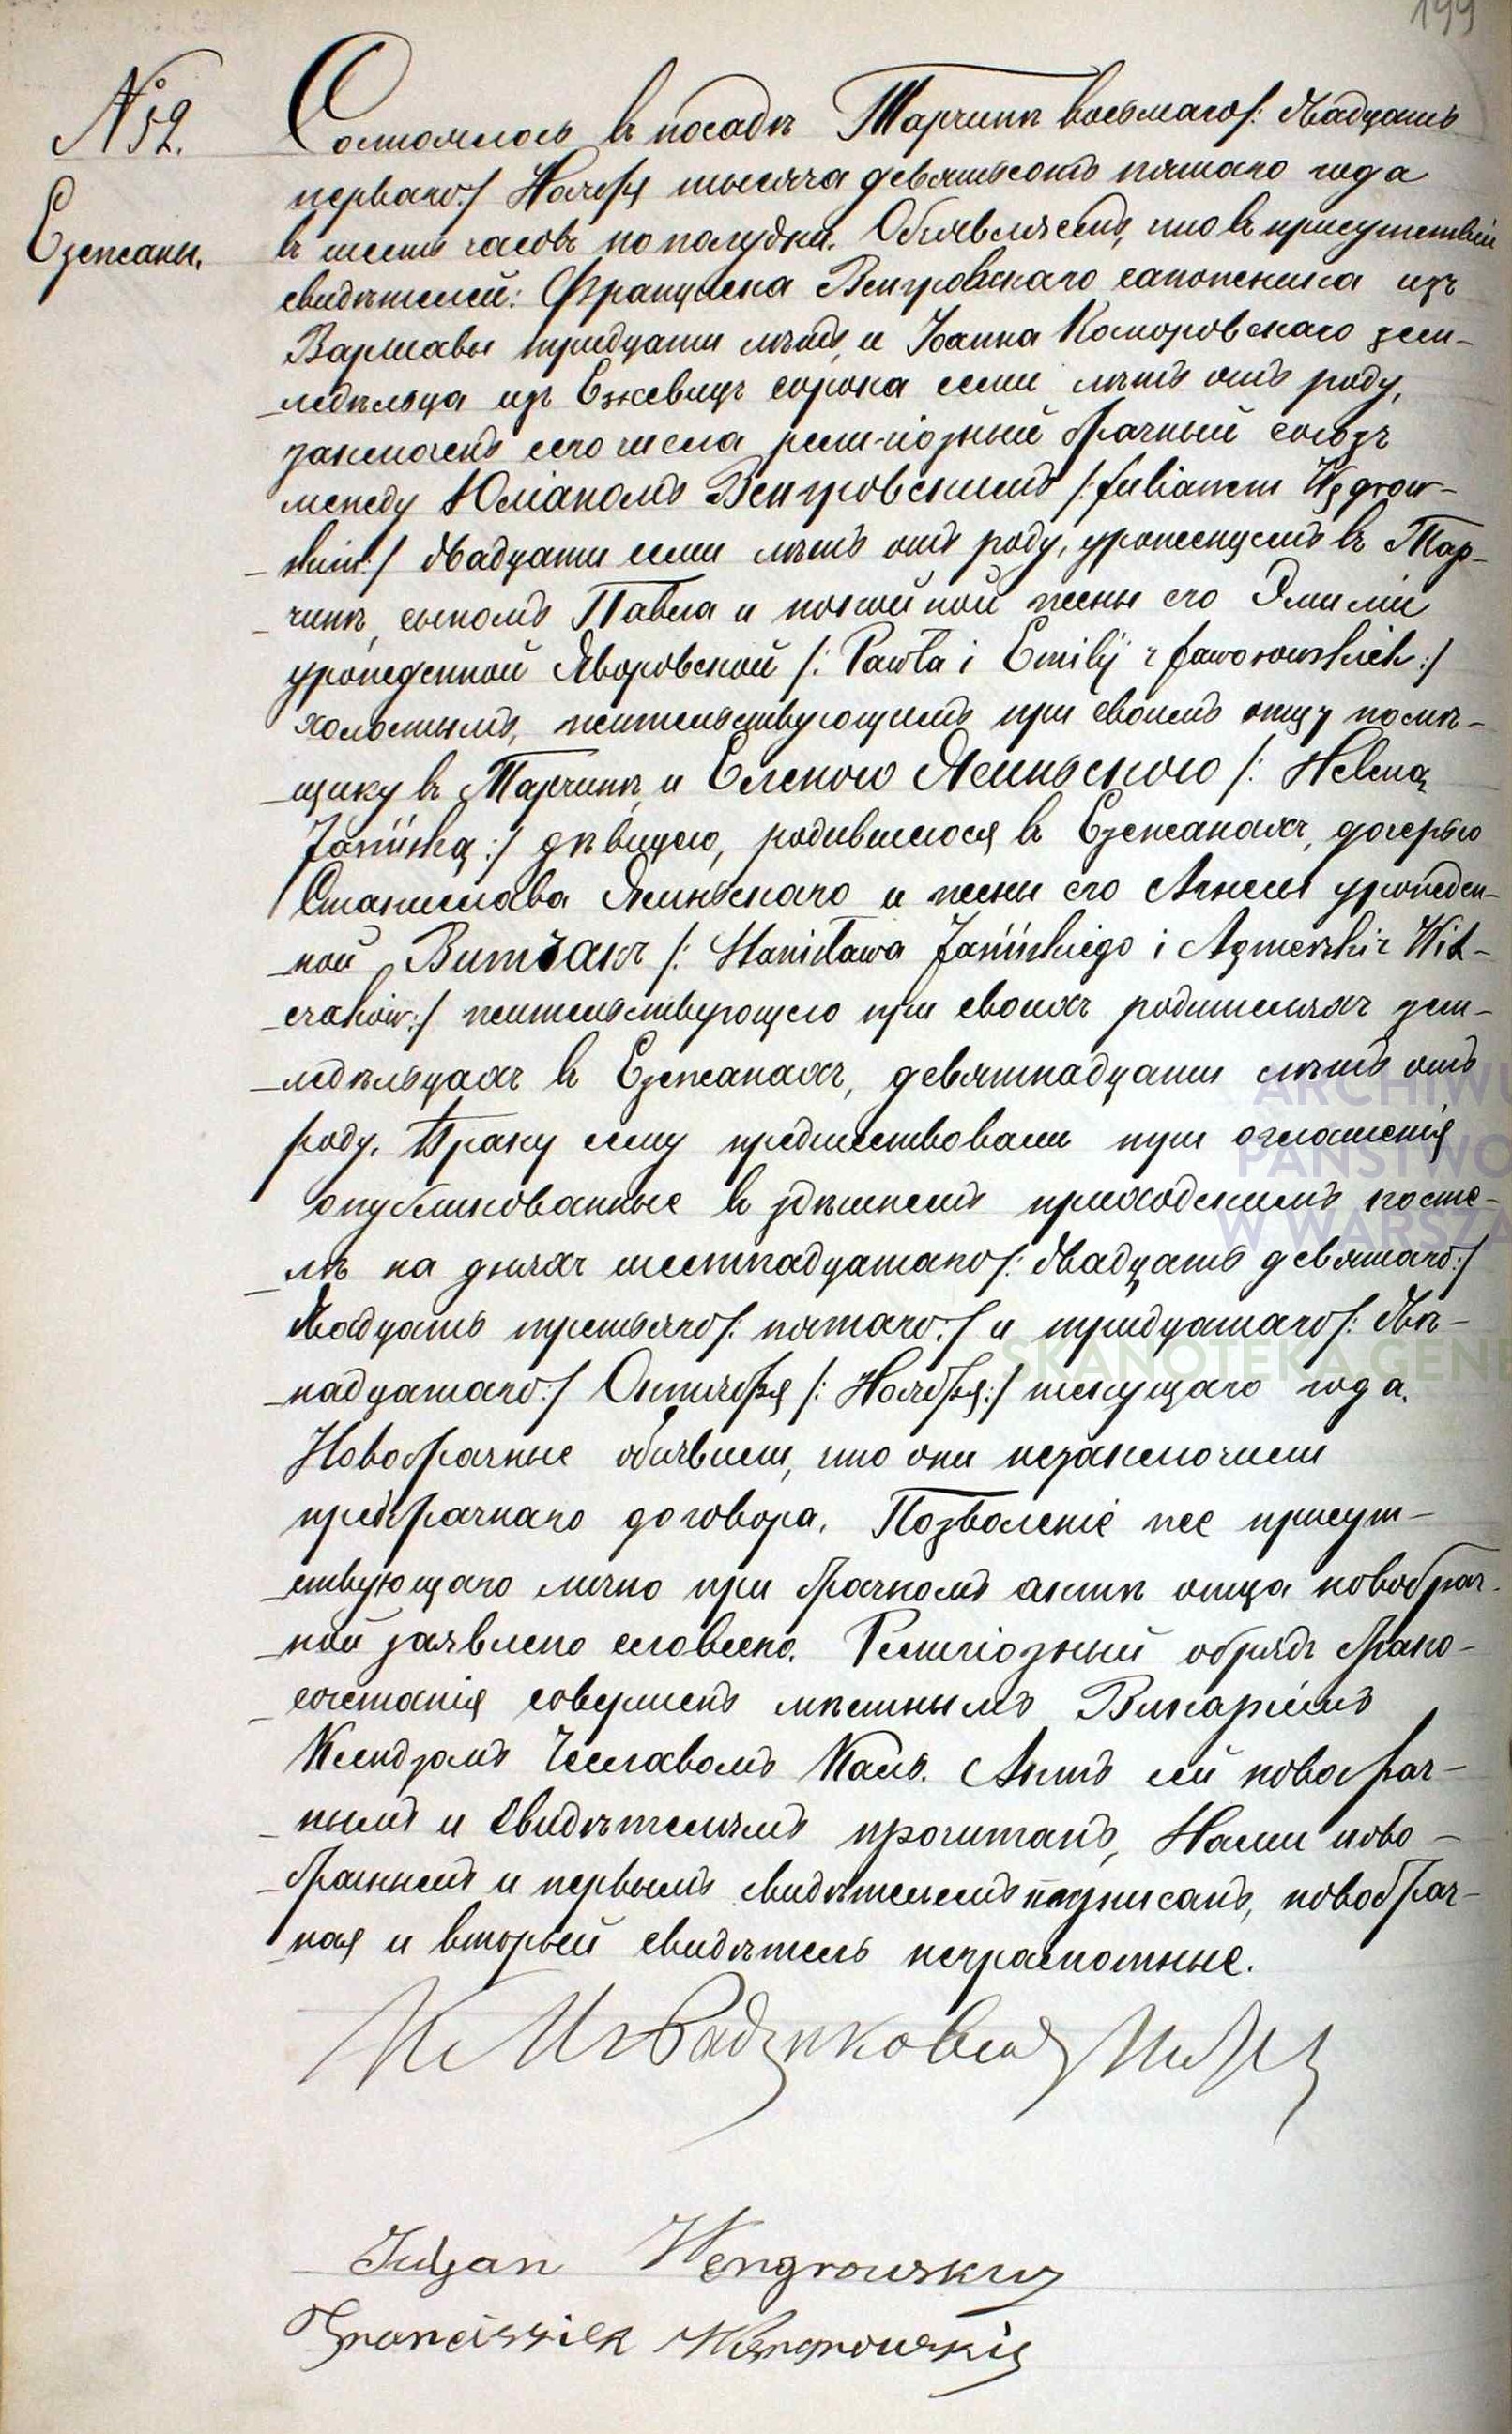 199
№ 52.
Езежаны.
Состоялось въ посадѣ Тарчинѣ восьмаго /: двадцать
перваго :/ Ноября тысяча девятьсотъ пятаго года
въ шесть часовъ по полудни. Объявляемъ, что въ присутствіи
свидѣтелей: Францишка Венгровскаго сапожника изъ
Варшавы тридцати лѣтъ, и Іоанна Коморовскаго зем-
-ледѣльца изъ Ежевицъ сорока семи лѣтъ отъ роду,
заключенъ сего числа религіозный брачный союзъ
между Юліаномъ Венгровскимъ /: Julianem Węgrow-
-skim :/ двадцати семи лѣтъ отъ роду, урожденцемъ въ Тар-
-чинѣ, сыномъ Павла и покойной жены его Эмиліи
урожденной Яворовской /: Pawła i Emilij z Jaworowskich :/
холостымъ, жительствующимъ при своемъ отцу помѣ-
-щику въ Тарчинѣ, и Еленою Ясиньскою /: Heleną
Jasińską :/ дѣвицею, родившеюся въ Езежанахъ, дочерью
Станислава Ясиньскаго и жены его Агнесы урожден-
-ной Витчакъ /: Stanisława Jasińskiego i Agnieszki z Wit-
-czaków :/ жительствующею при своихъ родителяхъ зем-
-ледѣльцахъ въ Езежанахъ, девятнадцати лѣтъ отъ
роду. Браку сему предшествовали три оглашенія
опубликованные въ здѣшнемъ приходскимъ косте-
-лѣ на дняхъ шестнадцатаго /: двадцать девятаго :/
двадцать третьяго /: пятаго :/ и тридцатаго /: двѣ-
-надцатаго :/ Октября /: Ноября :/ текущаго года.
Новобрачные объявили, что они незаключили
предбрачнаго договора. Позволеніе же присут-
-ствующаго лично при брачномъ актѣ отца новобрач-
-ной заявлено словесно. Религіозный обрядъ брако-
-сочетанія совершенъ мѣстнымъ Викаріемъ
Ксендзомъ Чеславомъ Каль. Актъ сей новобрач-
-нымъ и свидѣтелямъ прочитанъ, Нами ново-
-брачнымъ и первымъ свидѣтелемъ подписанъ, новобрач-
-ная и вторый свидѣтель неграмотные.
Julyan Wengrowsky
Franciszek Wengrowski
ARCHIWU
PAŃSTWO
W WARSZA
SKANOTEKA.GENE